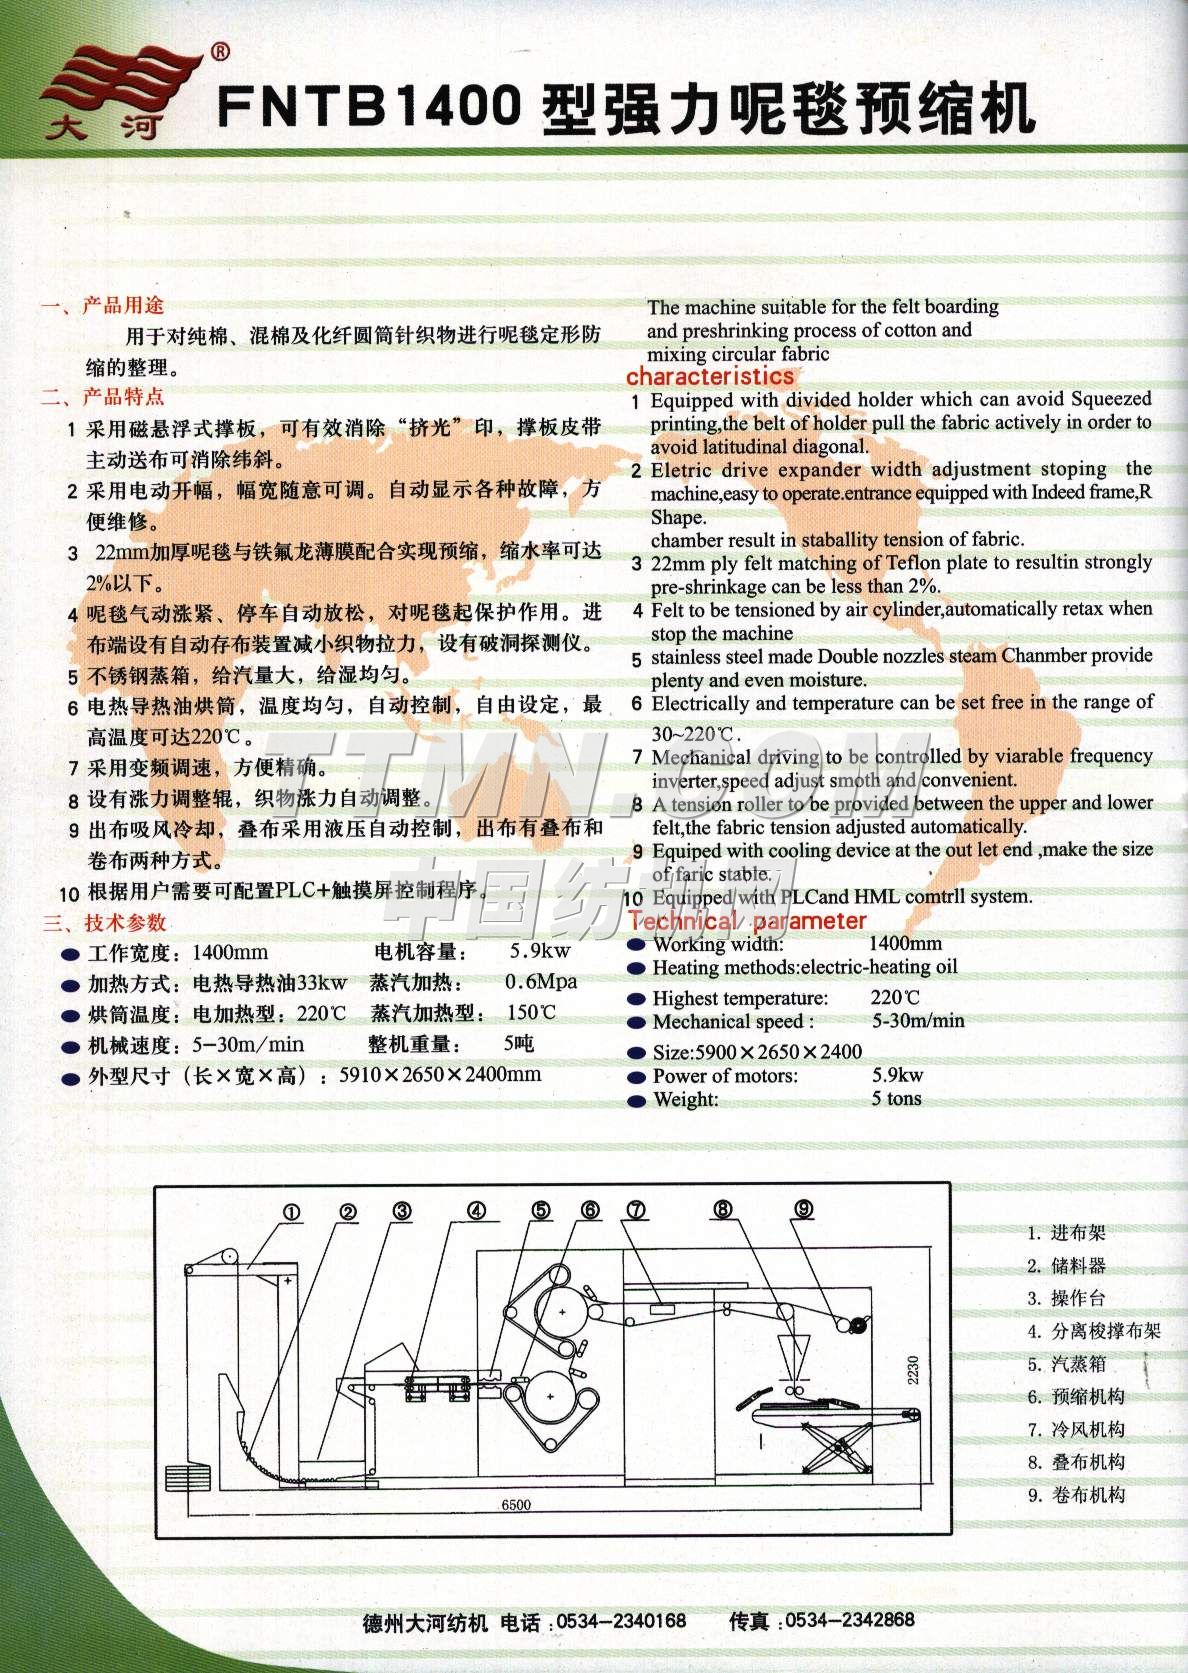 大河®
FNTB1400 型强力呢毯预缩机
一、产品用途
用于对纯棉、混棉及化纤圆筒针织物进行呢毯定形防
缩的整理。
二、产品特点
1 采用磁悬浮式撑板，可有效消除“挤光”印，撑板皮带
主动送布可消除纬斜。
2 采用电动开幅，幅宽随意可调。自动显示各种故障，方
便维修。
3 22mm加厚呢毯与铁氟龙薄膜配合实现预缩，缩水率可达
2%以下。
4 呢毯气动涨紧、停车自动放松，对呢毯起保护作用。进
布端设有自动存布装置减小织物拉力，设有破洞探测仪。
5 不锈钢蒸箱，给汽量大，给湿均匀。
6 电热导热油烘筒，温度均匀，自动控制，自由设定，最
高温度可达220℃。
7 采用变频调速，方便精确。
8 设有涨力调整辊，织物涨力自动调整。
9 出布吸风冷却，叠布采用液压自动控制，出布有叠布和
卷布两种方式。
10 根据用户需要可配置PLC+触摸屏控制程序。
三、技术参数
工作宽度：1400mm 电机容量： 5.9kw
加热方式：电热导热油33kw 蒸汽加热： 0.6Mpa
烘筒温度：电加热型：220℃ 蒸汽加热型： 150℃
机械速度：5-30m/min 整机重量： 5吨
外型尺寸（长×宽×高）：5910×2650×2400mm
The machine suitable for the felt boarding
and preshrinking process of cotton and
mixing circular fabric
characteristics
1 Equipped with divided holder which can avoid Squeezed
printing,the belt of holder pull the fabric actively in order to
avoid latitudinal diagonal.
2 Eletric drive expander width adjustment stoping the
machine,easy to operate.entrance equipped with Indeed frame,R
Shape.
chamber result in staballity tension of fabric.
3 22mm ply felt matching of Teflon plate to resultin strongly
pre-shrinkage can be less than 2%.
4 Felt to be tensioned by air cylinder,automatically retax when
stop the machine
5 stainless steel made Double nozzles steam Chanmber provide
plenty and even moisture.
6 Electrically and temperature can be set free in the range of
30~220℃.
7 Mechanical driving to be controlled by viarable frequency
inverter,speed adjust smoth and convenient.
8 A tension roller to be provided between the upper and lower
felt,the fabric tension adjusted automatically.
9 Equiped with cooling device at the out let end ,make the size
of faric stable.
10 Equipped with PLCand HML comtrll system.
Technical parameter
Working width: 1400mm
Heating methods:electric-heating oil
Highest temperature: 220℃
Mechanical speed : 5-30m/min
Size:5900×2650×2400
Power of motors: 5.9kw
Weight: 5 tons
TTMN.COM
中国纺机网
① ② ③ ④ ⑤ ⑥ ⑦ ⑧ ⑨
2230
6500
1. 进布架
2. 储料器
3. 操作台
4. 分离梭撑布架
5. 汽蒸箱
6. 预缩机构
7. 冷风机构
8. 叠布机构
9. 卷布机构
德州大河纺机 电话:0534-2340168 传真:0534-2342868